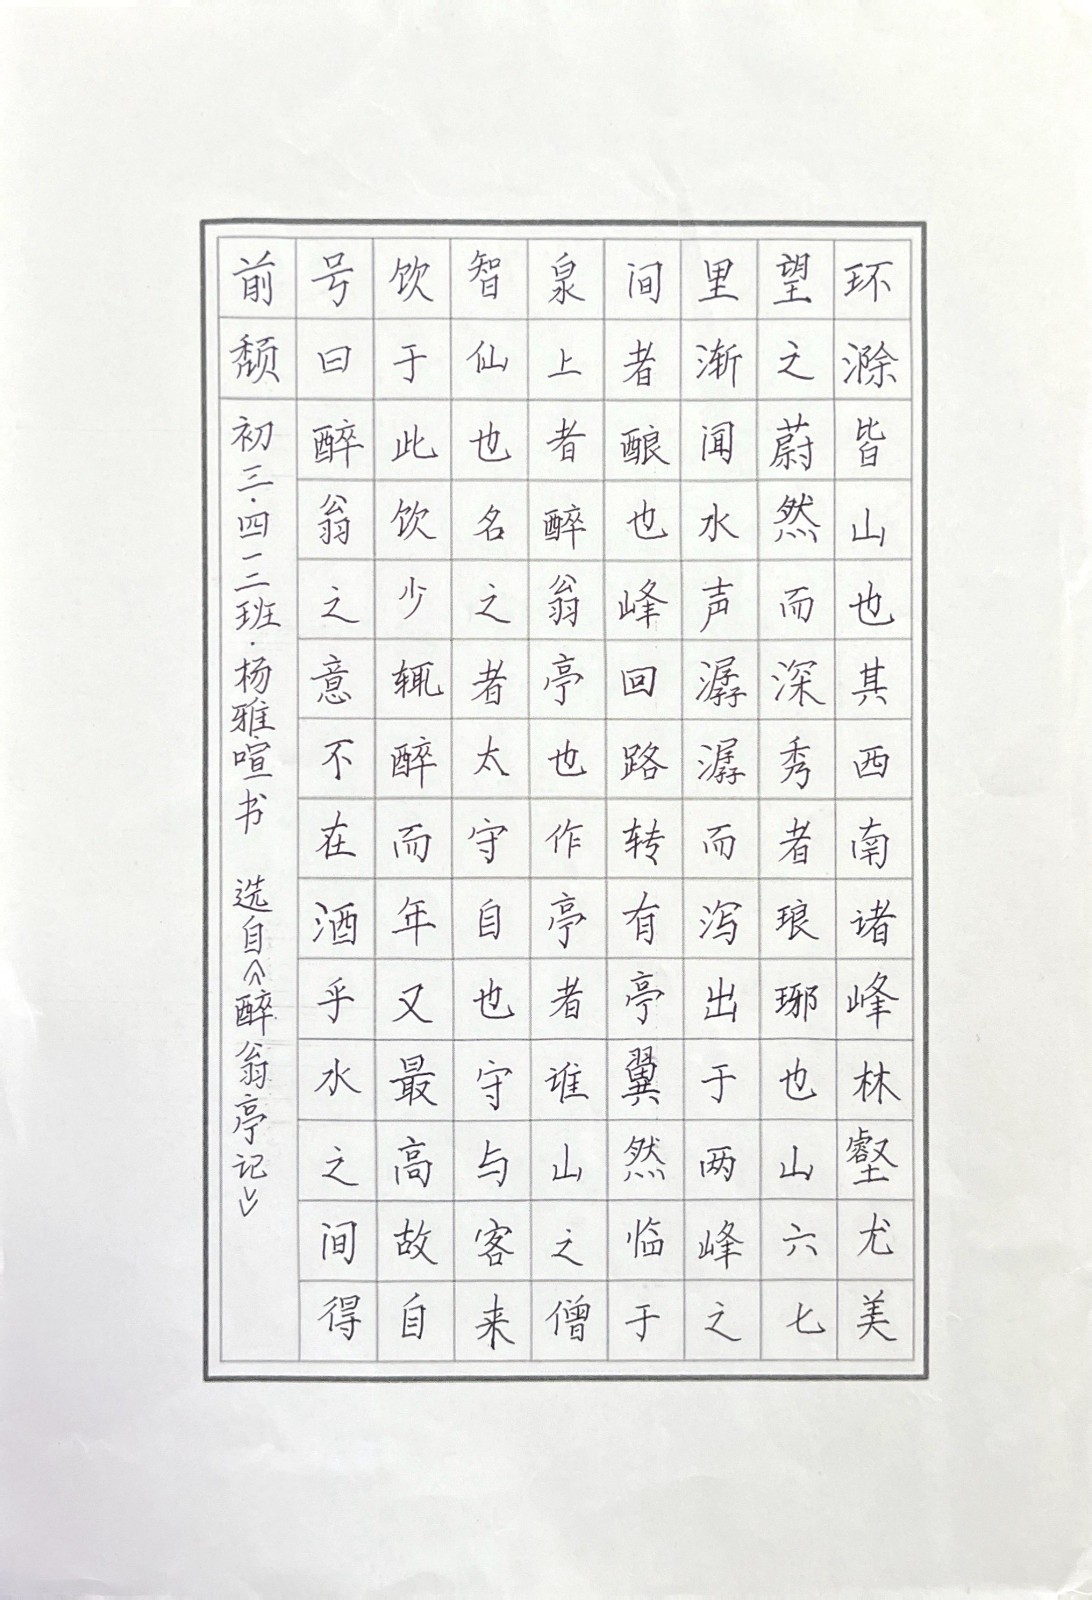 环滁皆山也其西南诸峰林壑尤美
望之蔚然而深秀者琅琊也山六七
里渐闻水声潺潺而泻出于两峰之
间者酿也峰回路转有亭翼然临于
泉上者醉翁亭也作亭者谁山之僧
智仙也名之者太守自也守与客来
饮于此饮少辄醉而年又最高故自
号曰醉翁之意不在酒乎水之间得
前颓
初三·四一二班·杨雅喧书 选自《醉翁亭记》